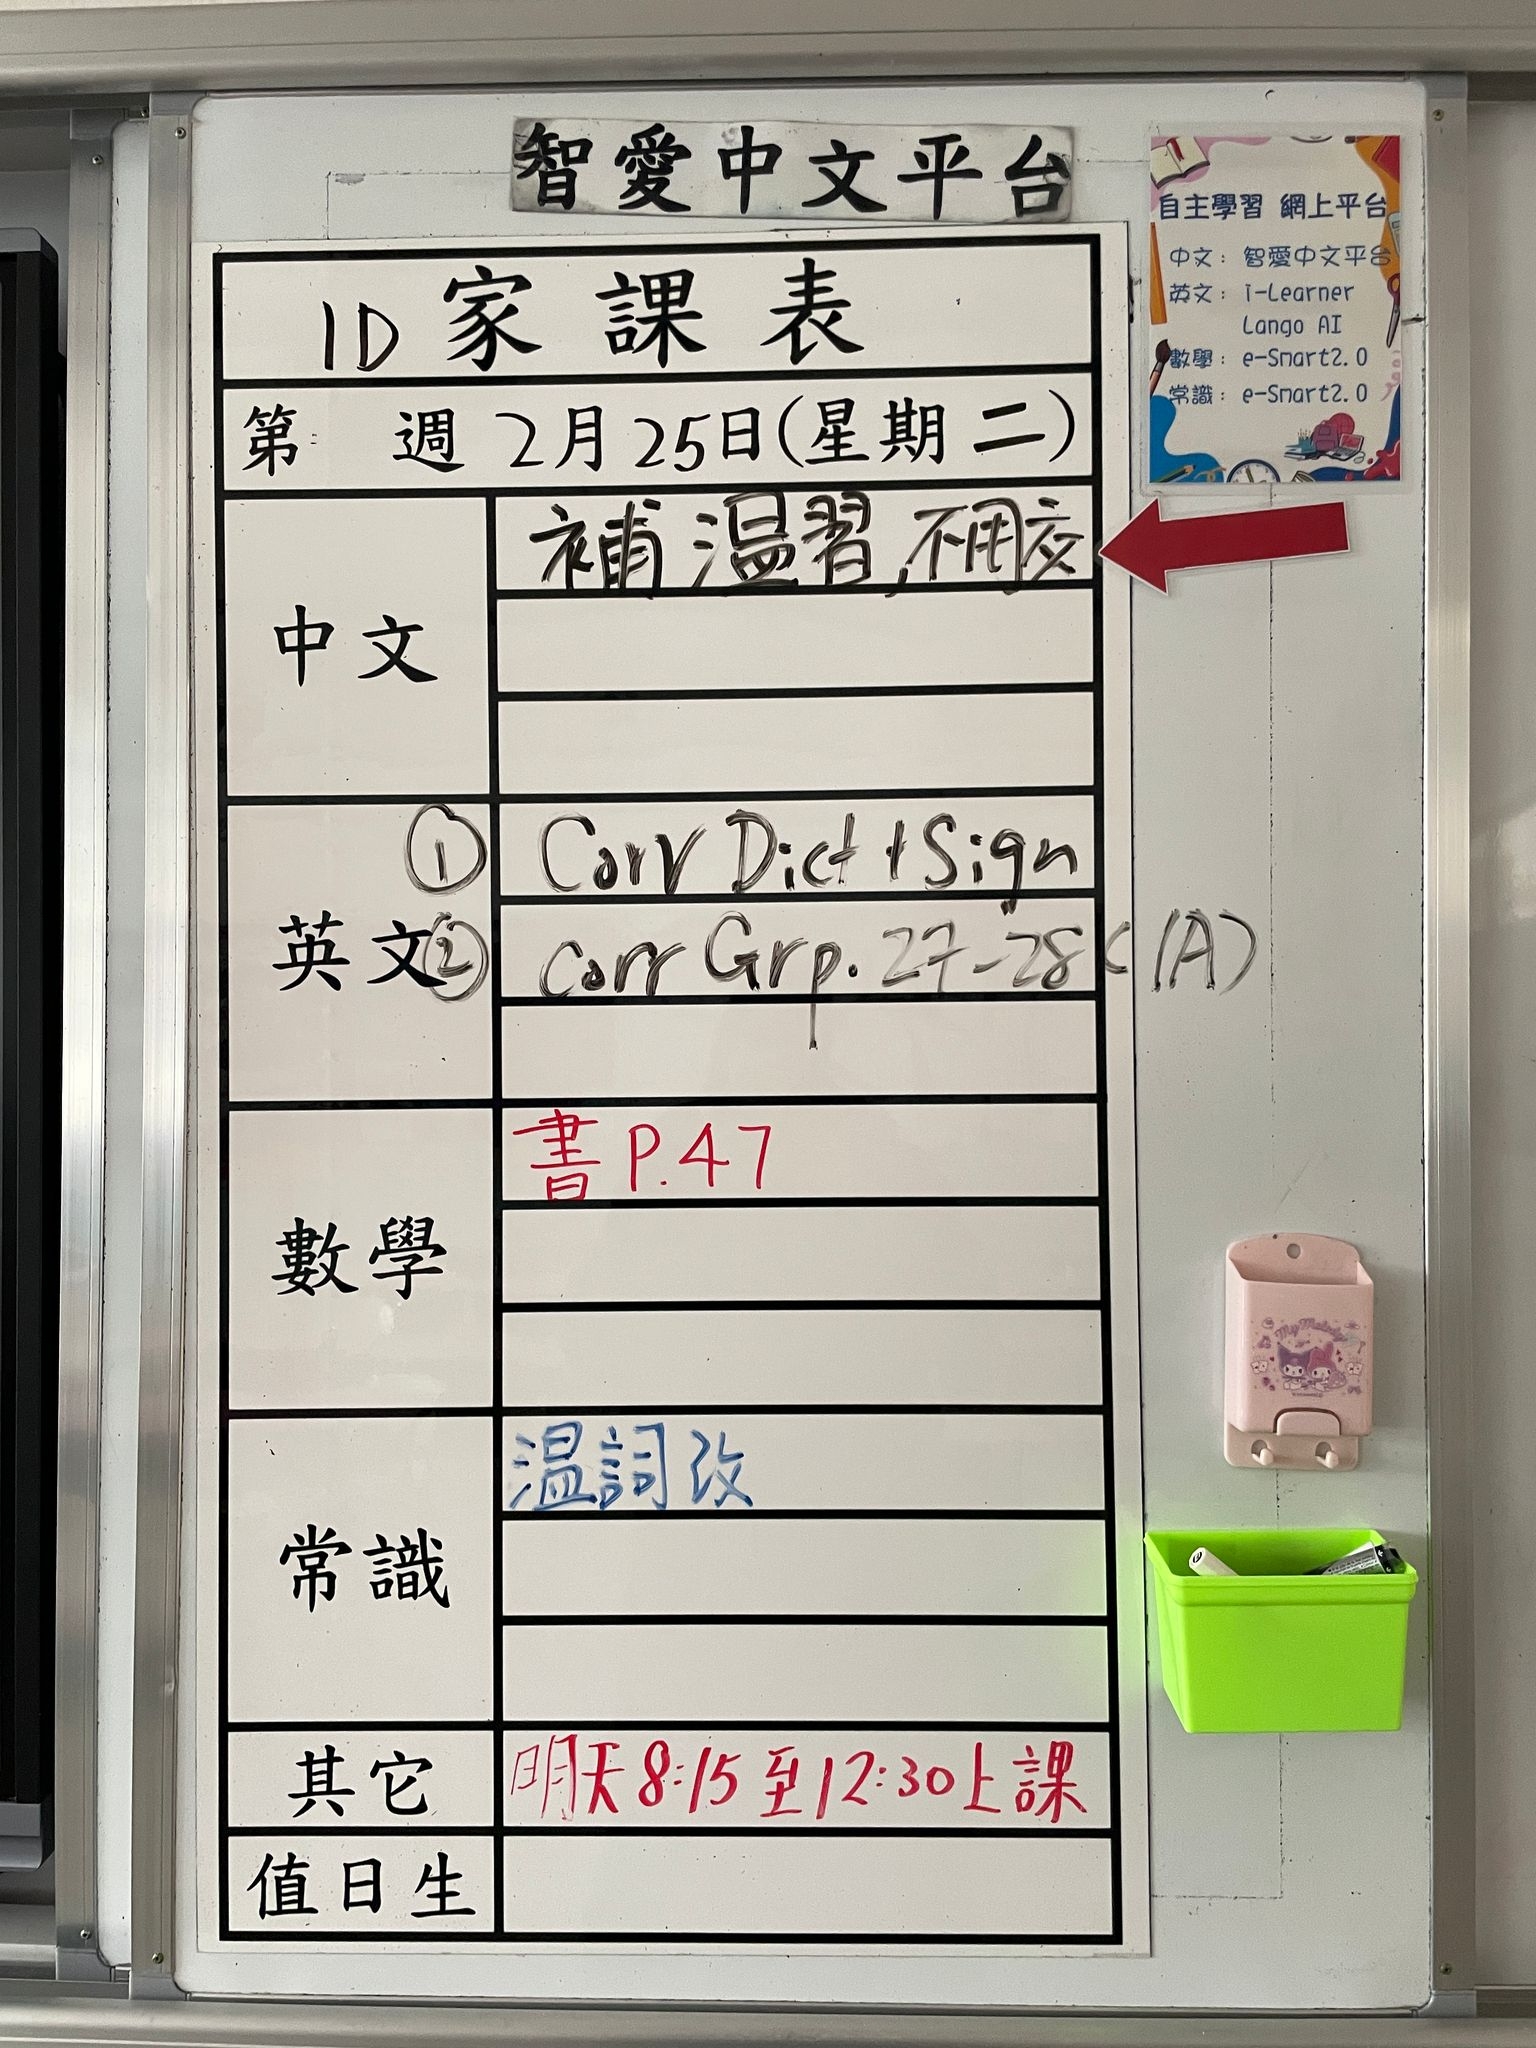 智愛中文平台
自主學習 網上平台
中文：智愛中文平台
英文：i-Learner
Lango AI
數學：e-Smart2.0
常識：e-Smart2.0
1D 家課表
第 週 2月25日(星期二)
中文
補 溫習,不用交
英文
① Corr Dict + Sign
② Corr Gr p. 27-28 (A)
數學
書 P.47
常識
溫詞改
其它
明天8:15至12:30上課
值日生
My Melody